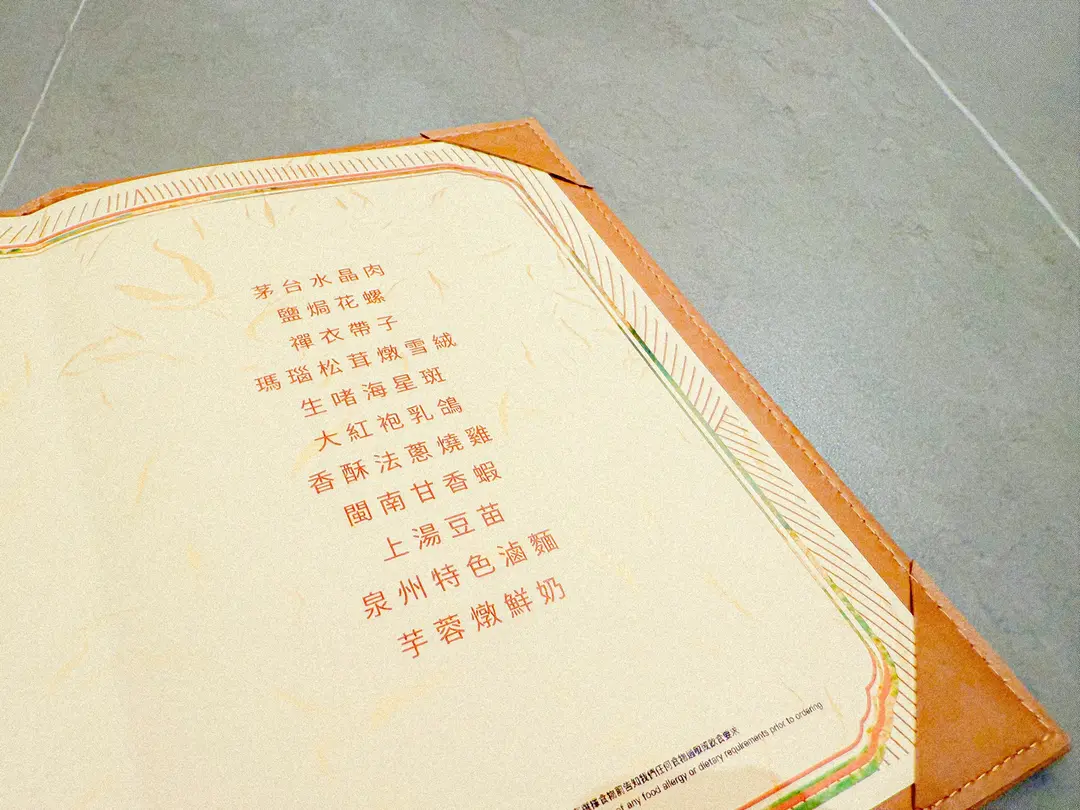 茅台水晶肉
鹽焗花螺
禪衣帶子
瑪瑙松茸燉雪絨
生啫海星斑
大紅袍乳鴿
香酥法蔥燒雞
閩南甘香蝦
上湯豆苗
泉州特色滷麵
芋蓉燉鮮奶
擇食物前告知我們任何食物過敏或飲食要求
of any food allergy or dietary requirements prior to ordering